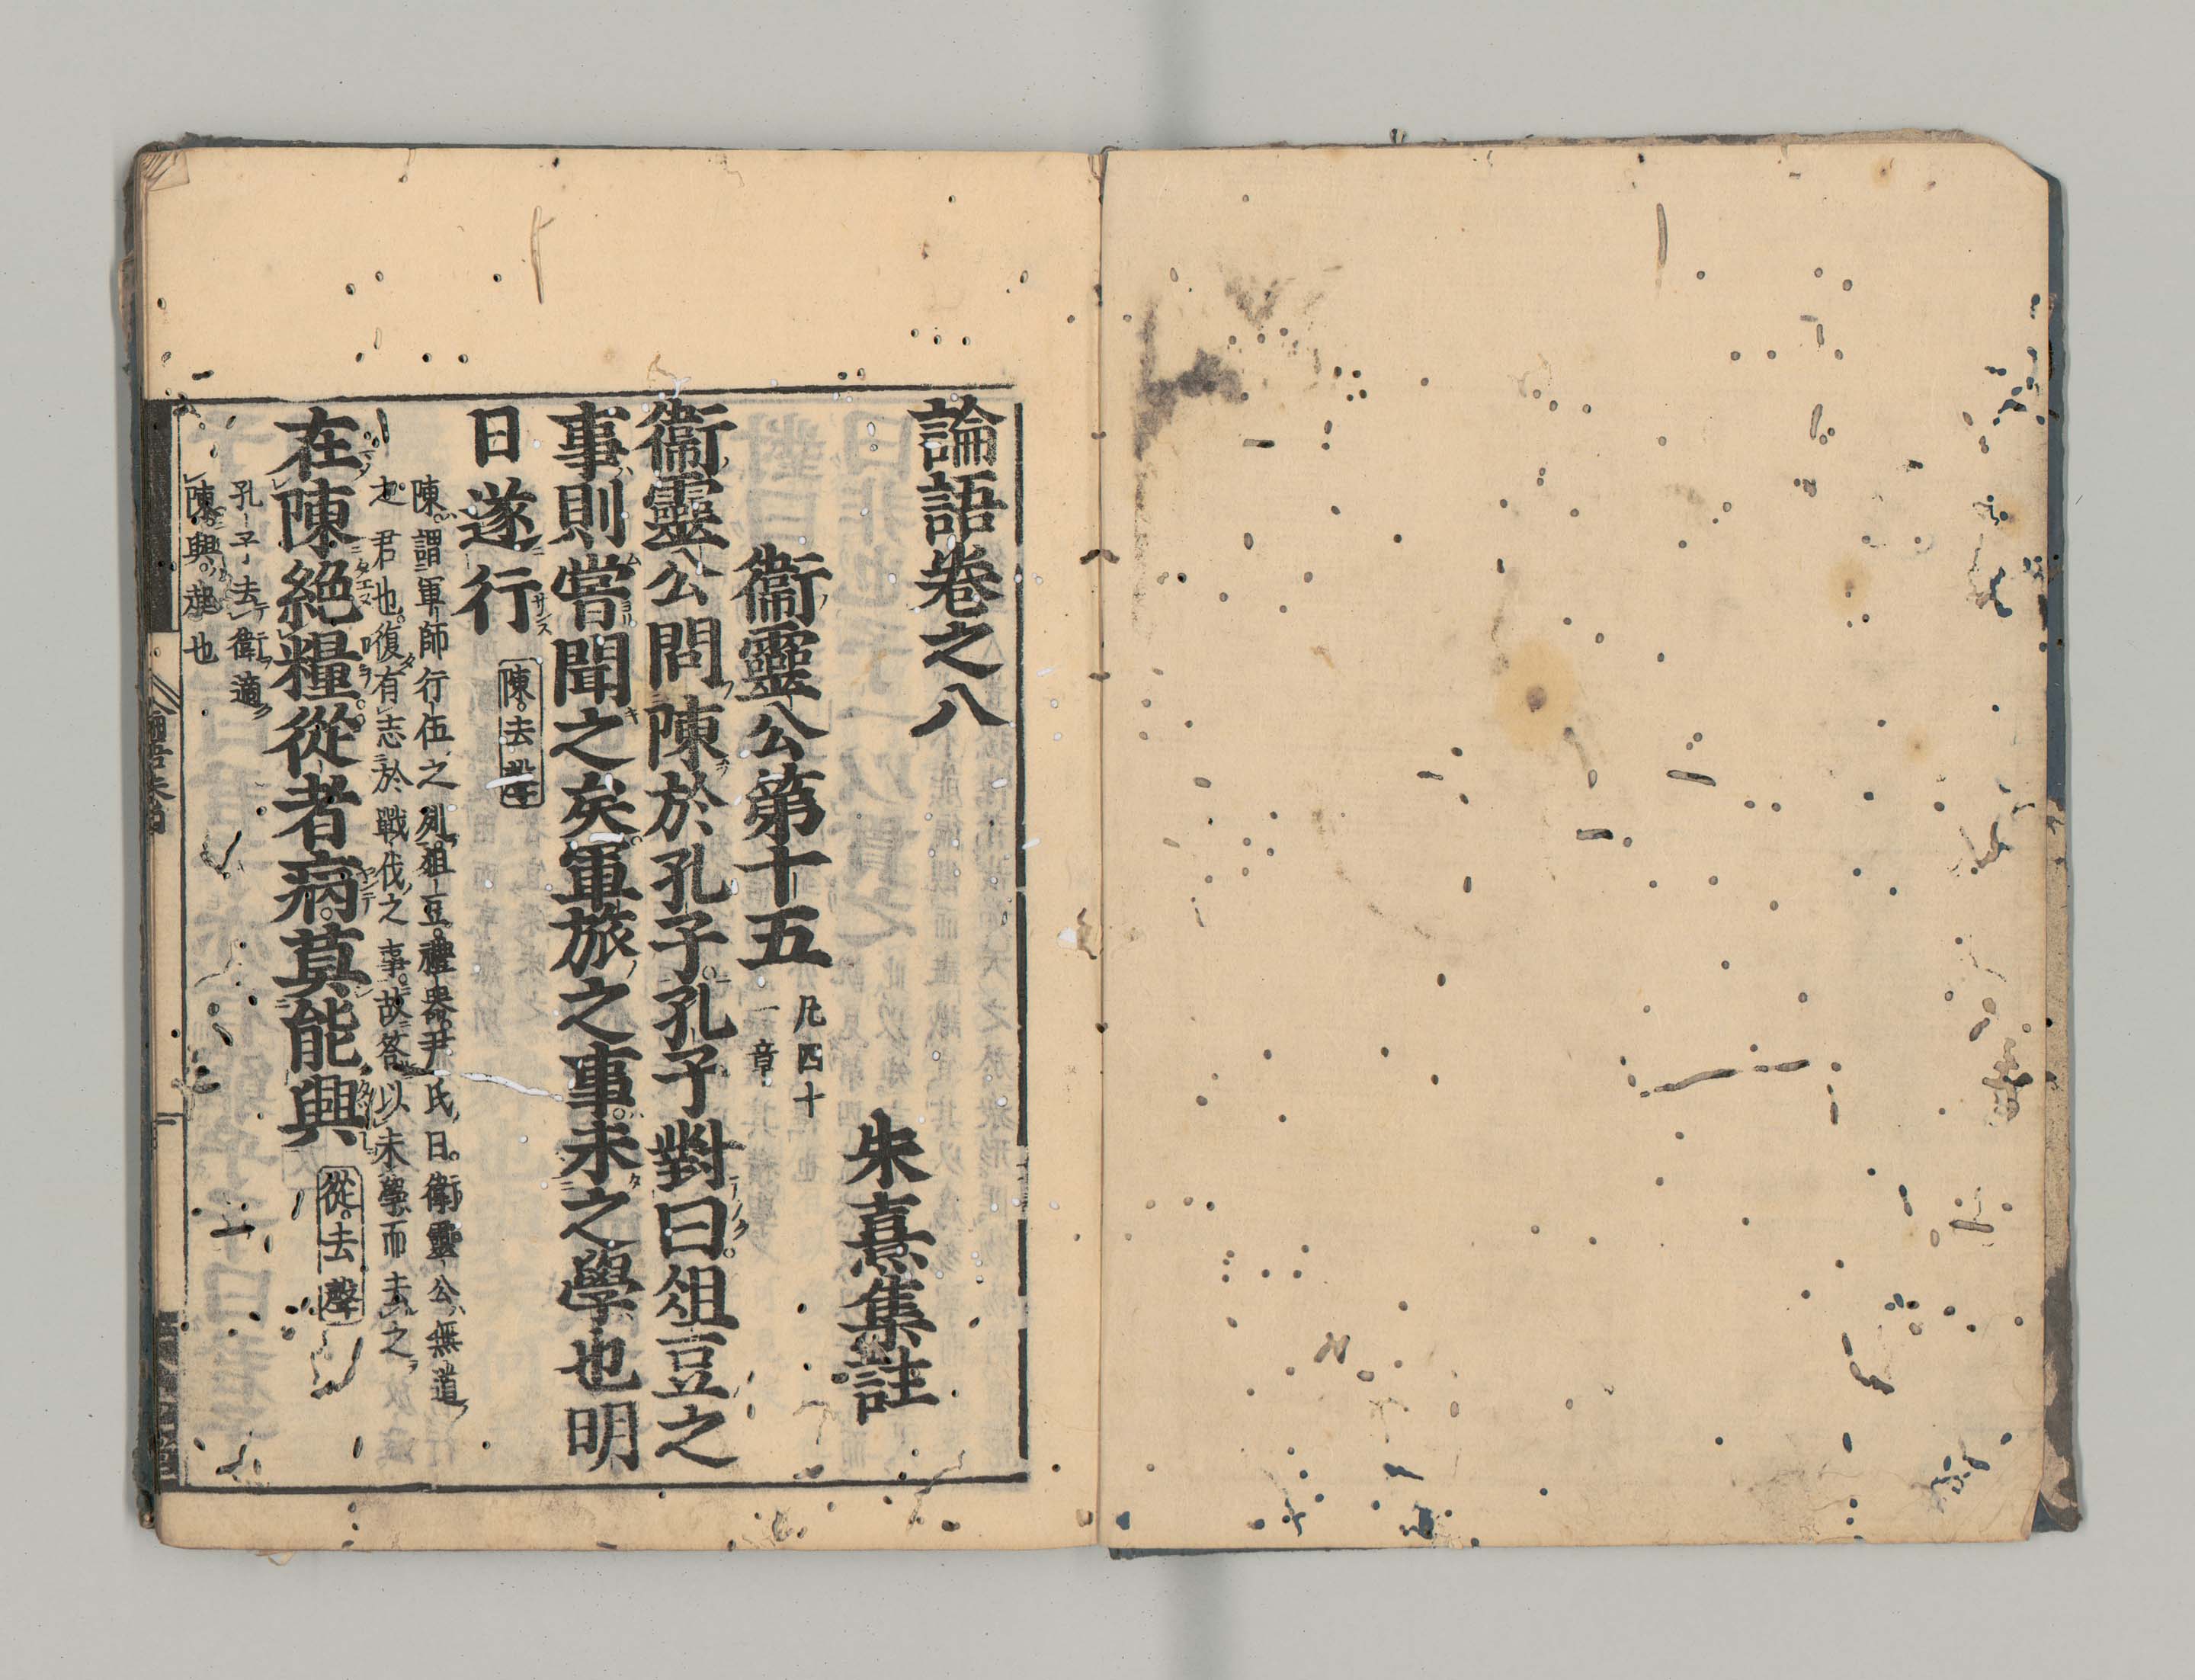 論語卷之八
朱熹集註
衞靈公第十五
凡四十
一章
衞靈公問陳於孔子孔子對曰俎豆之
事則嘗聞之矣軍旅之事未之學也明
日遂行
陳去聲
陳謂軍師行伍之列俎豆禮器尹氏曰衞靈公無道
之君也復有志於戰伐之事故答以未學而去之
在陳絕糧從者病莫能興
從去聲
孔子去衞適
陳興起也